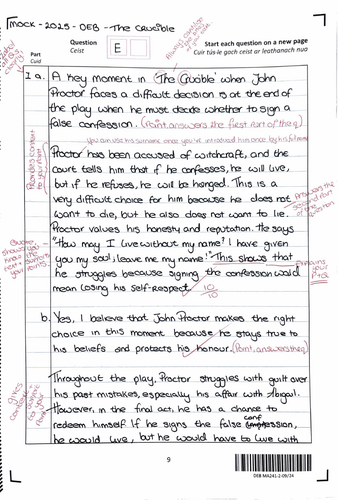 Mock - 2025 - DEB - The Crucible
Question
Ceist
E
Start each question on a new page
Cuir tús le gach ceist ar leathanach nua
Part
Cuid
1 a. A key moment in 'The Crucible' when John
Proctor faces a difficult decision is at the end of
the play when he must decide whether to sign a
false confession. (Point, answers the first part of the q)
You can use his surname once you've introduced him once by his full name
Proctor has been accused of witchcraft, and the
court tells him that if he confesses, he will live,
but if he refuses, he will be hanged. This is a
very difficult choice for him because he does not
want to die, but he also does not want to lie.
Proctor values his honesty and reputation. He says
"How may I live without my name? I have given
you my soul; leave me my name!" This shows that
he struggles because signing the confession would
mean losing his self-respect.
10/10
Answers the
second part
of the
question
b. Yes, I believe that John Proctor makes the right
choice in this moment because he stays true to
his beliefs and protects his honour. (Point, answers the q)
Throughout the play, Proctor struggles with guilt over
his past mistakes, especially his affair with Abigail.
However, in the final act, he has a chance to
redeem himself. If he signs the false conf
he would live, but he would have to live with
9
DEB-MA241-2-09/24